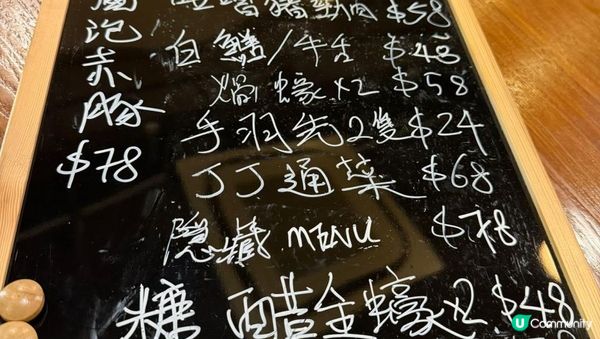 泡
赤
豚
$78
豬頸肉 $58
白鱔/牛舌 $48
焗蠔x2 $58
手羽先2隻 $24
丁丁通菜 $68
隱藏 MENU $78
糖醋生蠔x2 $48
U Community